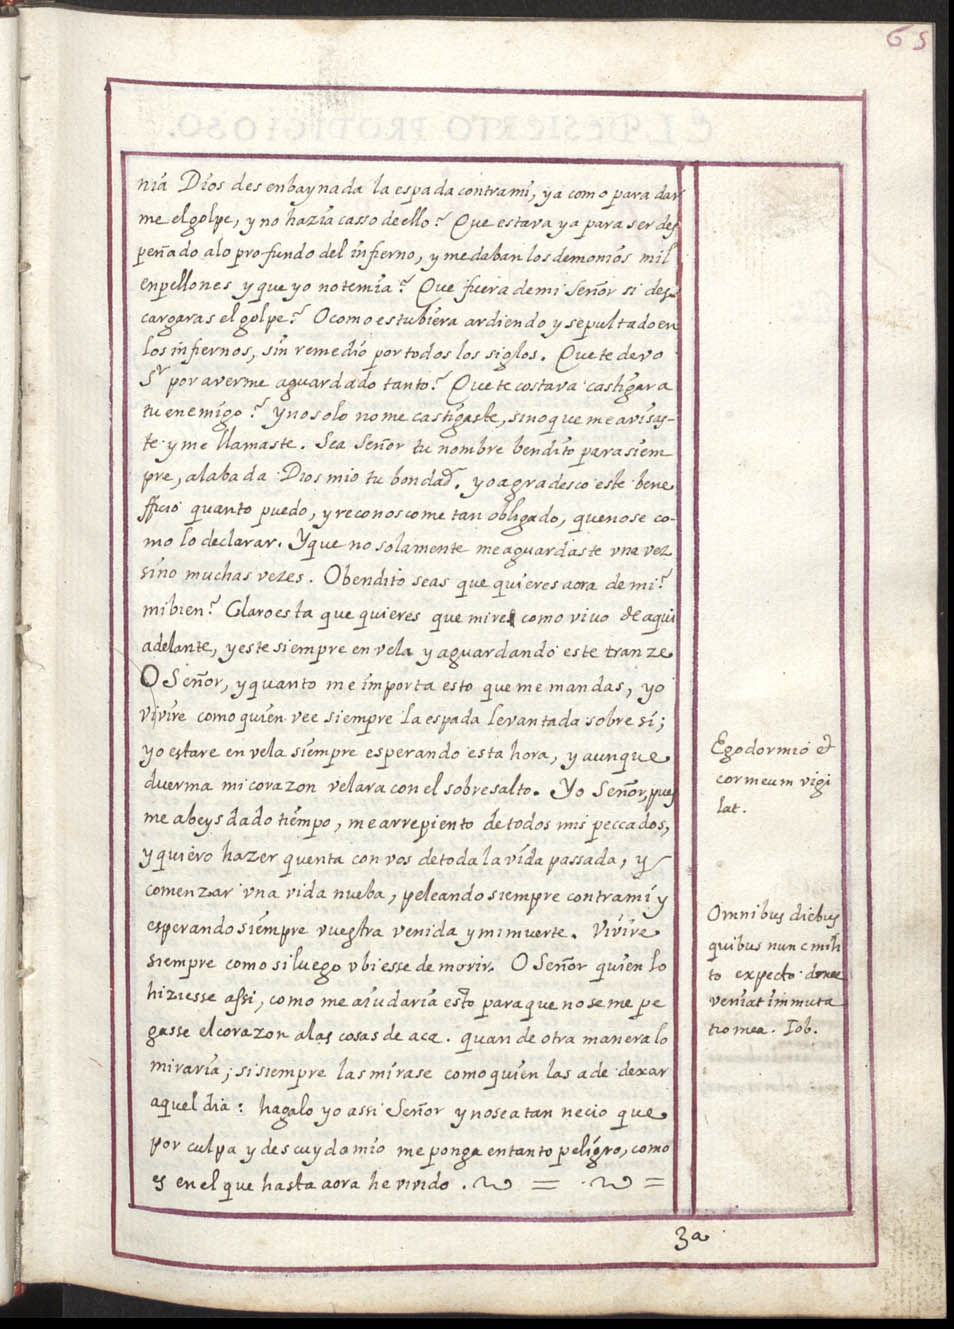 65
nia Dios desenbaynada la espada contra mi, ya como para dar
me el golpe, y no hazia casso de ello? Que estava ya para ser des
peñado a lo profundo del infierno, y me daban los demonios mil
enpellones y que yo no temia? Que fuera de mi Señor si des-
cargaras el golpe? O como estubiera ardiendo y sepultado en
los infiernos, sin remedio por todos los siglos. Que te devo
Sr por averme aguardado tanto? Que te costava castigar a
tu enemigo? y no solo no me castigaste, sino que me avisas-
te y me llamaste. Sea Señor tu nombre bendito para siem
pre, alabada Dios mio tu bondad. yo agradesco este bene
fficio quanto puedo, y reconoscome tan obligado, que no se co-
mo lo declarar. Y que no solamente me aguardaste vna vez
sino muchas vezes. O bendito seas que quieres aora de mi?
mi bien? Claro esta que quieres que mire como vivo de aqui
adelante, y este siempre en vela y aguardando este tranze
O Señor, y quanto me importa esto que me mandas, yo
vivire como quien vee siempre la espada levantada sobre si;
yo estare en vela siempre esperando esta hora, y aunque
duerma mi corazon velara con el sobresalto. Yo Señor, pues
me abeys dado tiempo, me arrepiento de todos mis peccados,
y quiero hazer quenta con vos de toda la vida passada, y
comenzar vna vida nueba, peleando siempre contra mi y
esperando siempre vuestra venida y mi muerte. Vivire
siempre como si luego vbiesse de morir. O Señor quien lo
hiziesse assi, como me aiudaria esto para que no se me pe
gasse el corazon a las cosas de aca. quan de otra manera lo
miraria, si siempre las mirase como quien las a de dexar
aquel dia: hagalo yo assi Señor y no sea tan necio que
por culpa y descuydo mio me ponga en tanto peligro, como
es en el que hasta aora he vivido.
Ego dormio et
cor meum vigi
lat.
Omnibus diebus
quibus nunc mili
to expecto donec
veniat immuta
tio mea. Iob.
3a